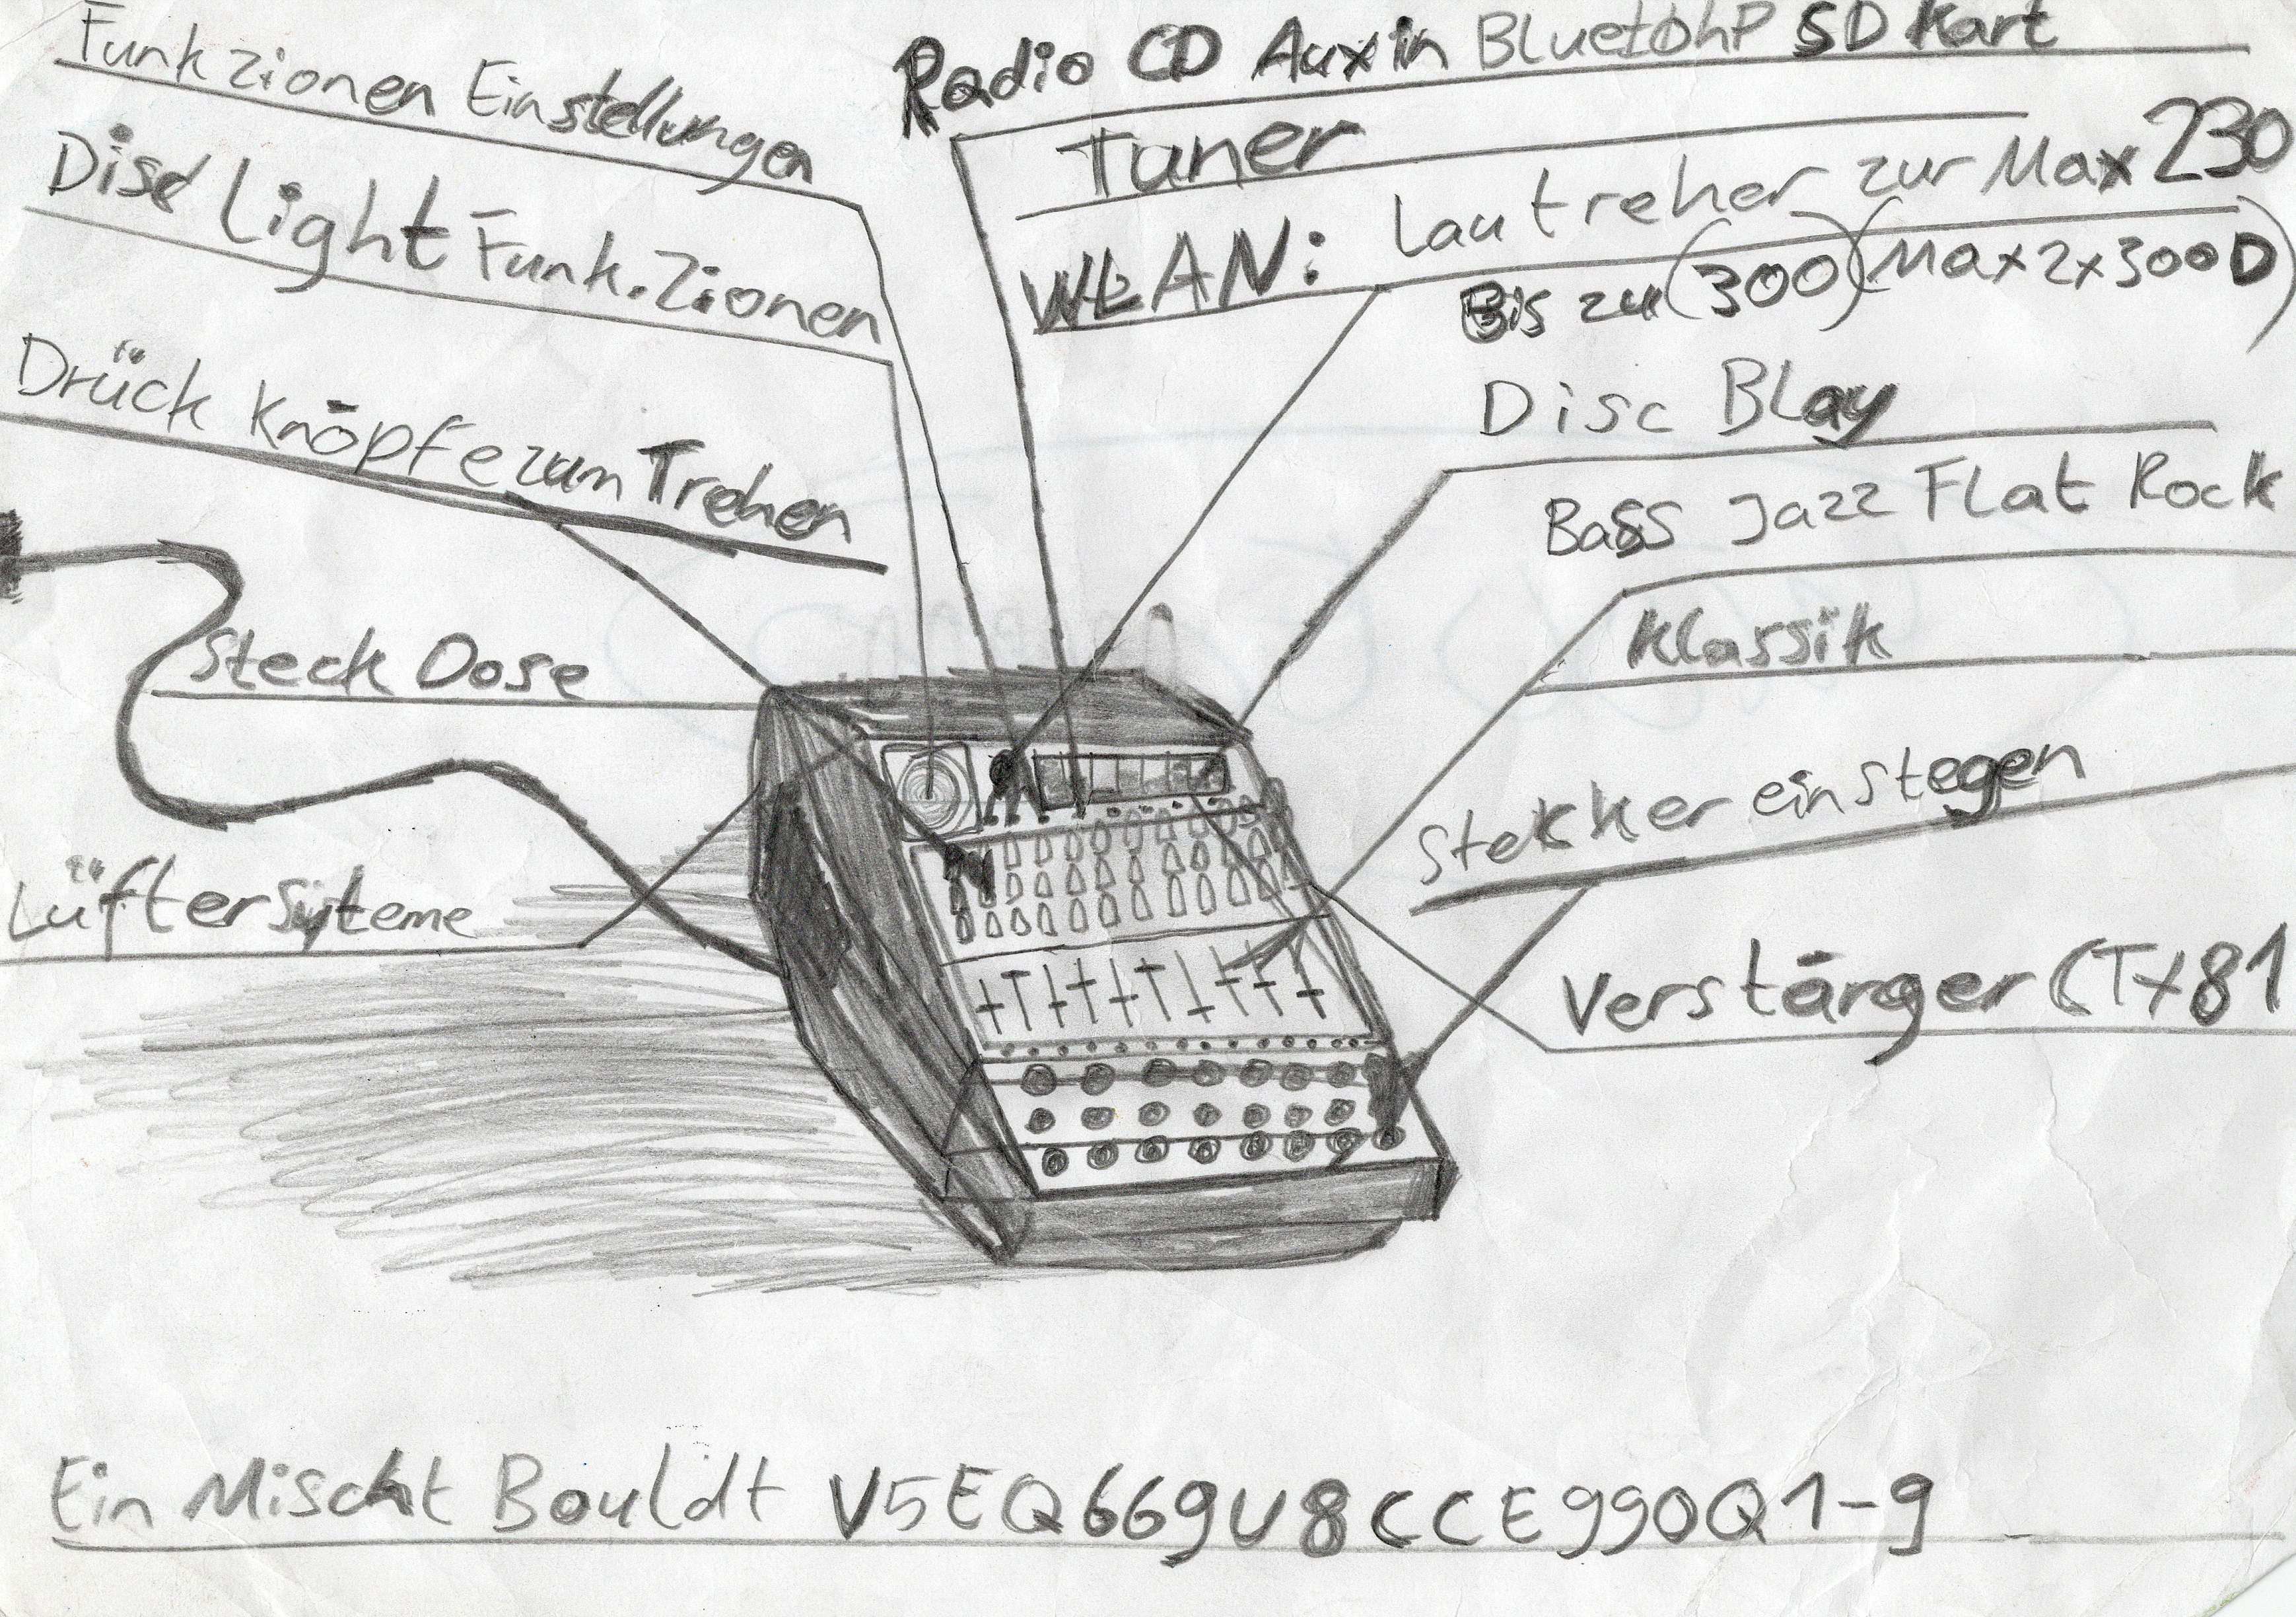 Funkzionen Einstellungen
Disc Light Funk.Zionen
Drück Knöpfe zum Trehen
Steck Dose
Lüfter Syteme
Radio CD Aux in Bluetohp SD Kart
Tuner
WLAN: Lautreher zur Max 230
Bis zu (300) (Max 2x300D)
Disc BLay
Bass Jazz Flat Rock
Klassik
Stekker einstegen
Verstärger (TX81
Ein Mischt Bouldt V5EQ669U8CCE990Q1-9